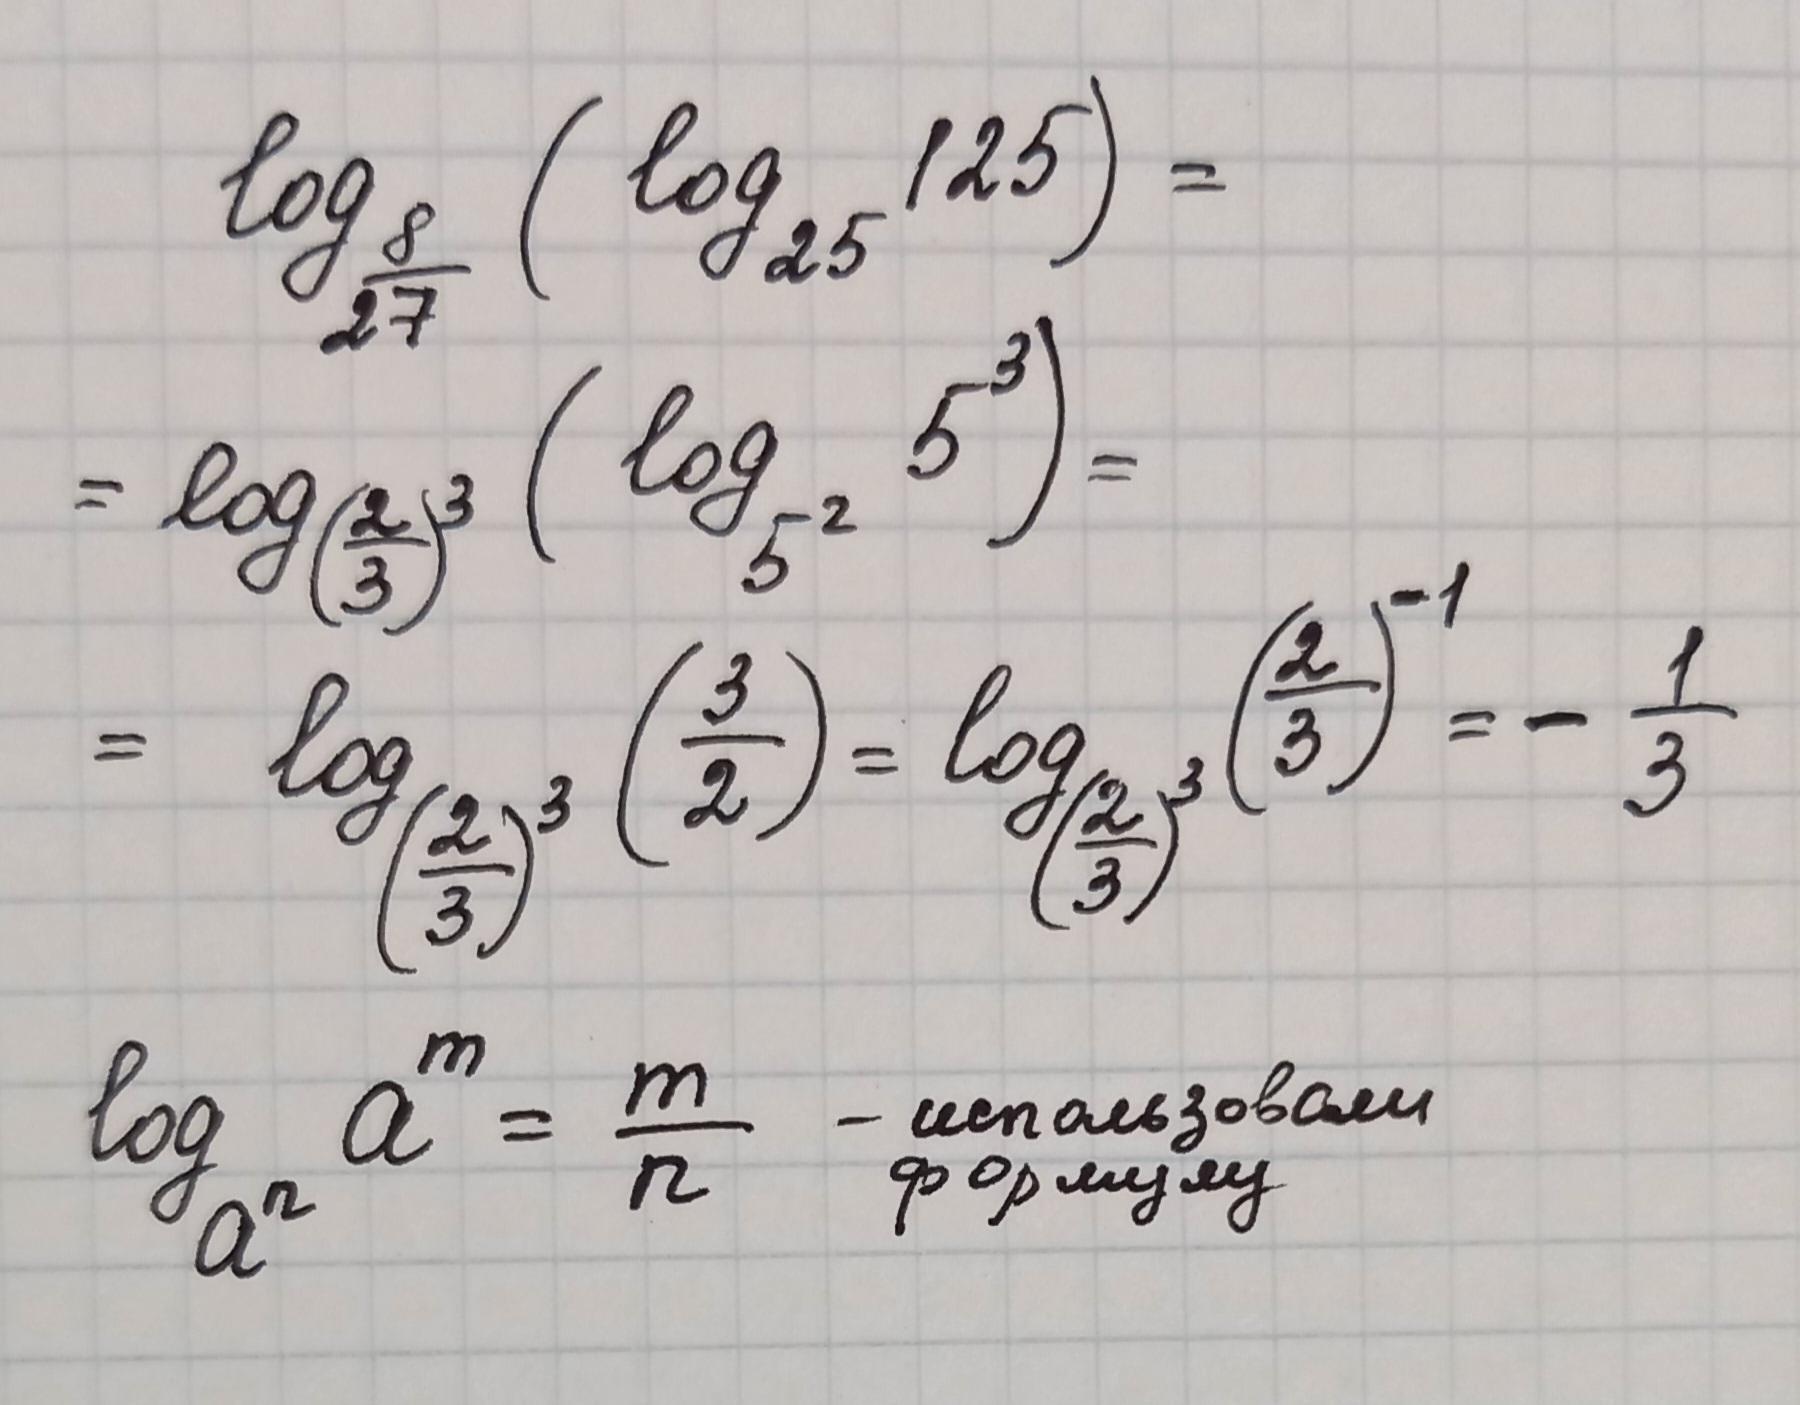 log_{8/27} (log_{25} 125) =
= log_{(2/3)^3} (log_{5^2} 5^3) =
= log_{(2/3)^3} (3/2) = log_{(2/3)^3} (2/3)^{-1} = - 1/3
log_{a^n} a^m = m/n - использовали
формулу